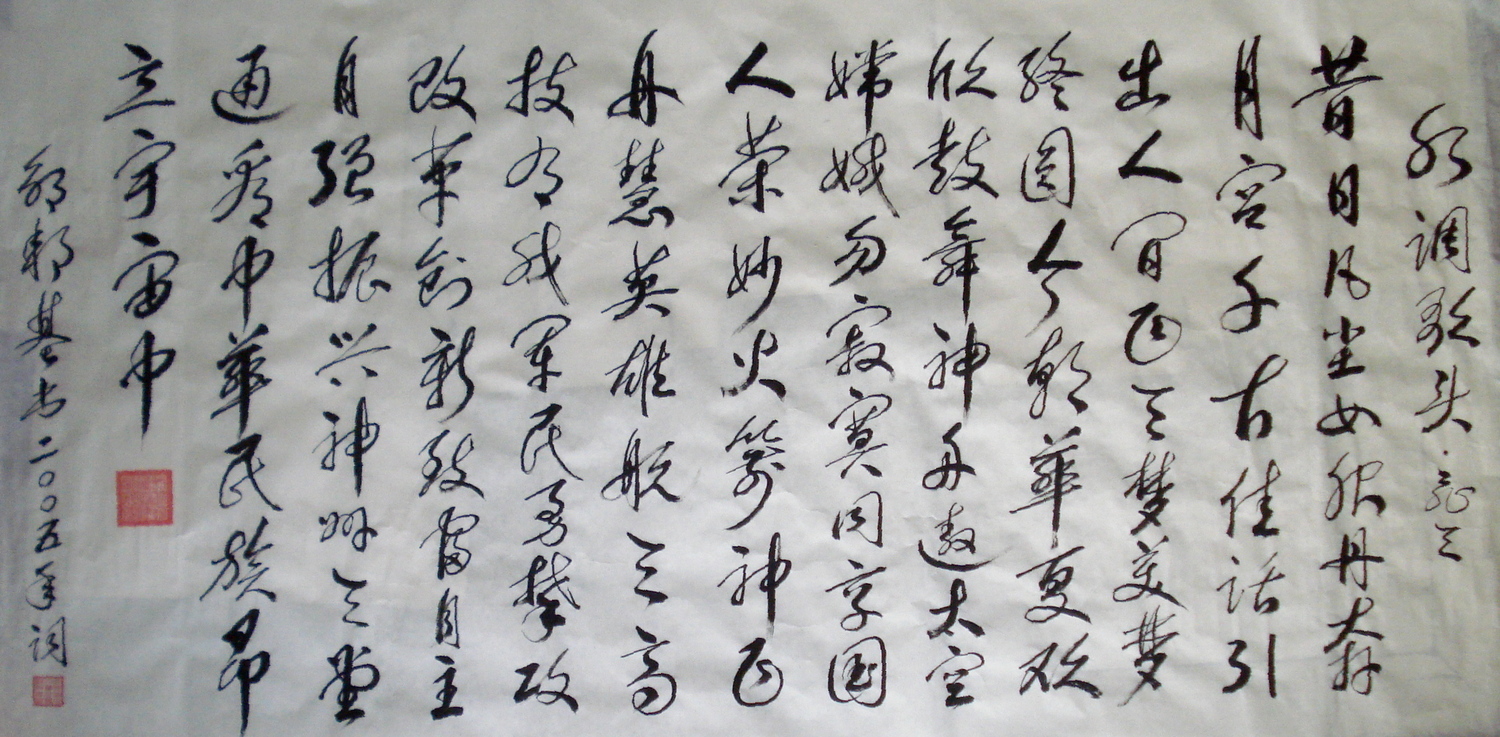 水调歌头·飞天
昔日风尘女服丹奔
月宫千古佳话引
出人间飞天梦美梦
终圆今朝华夏欢
欣鼓舞神舟遨太空
嫦娥勿寂寞同享国
人荣妙火箭神飞
舟慧英雄航天高
技为我军民勇攀攻
改革创新致富自主
自强振兴神州天堂
通看中华民族昂
立宇宙中
基书二〇〇五年词